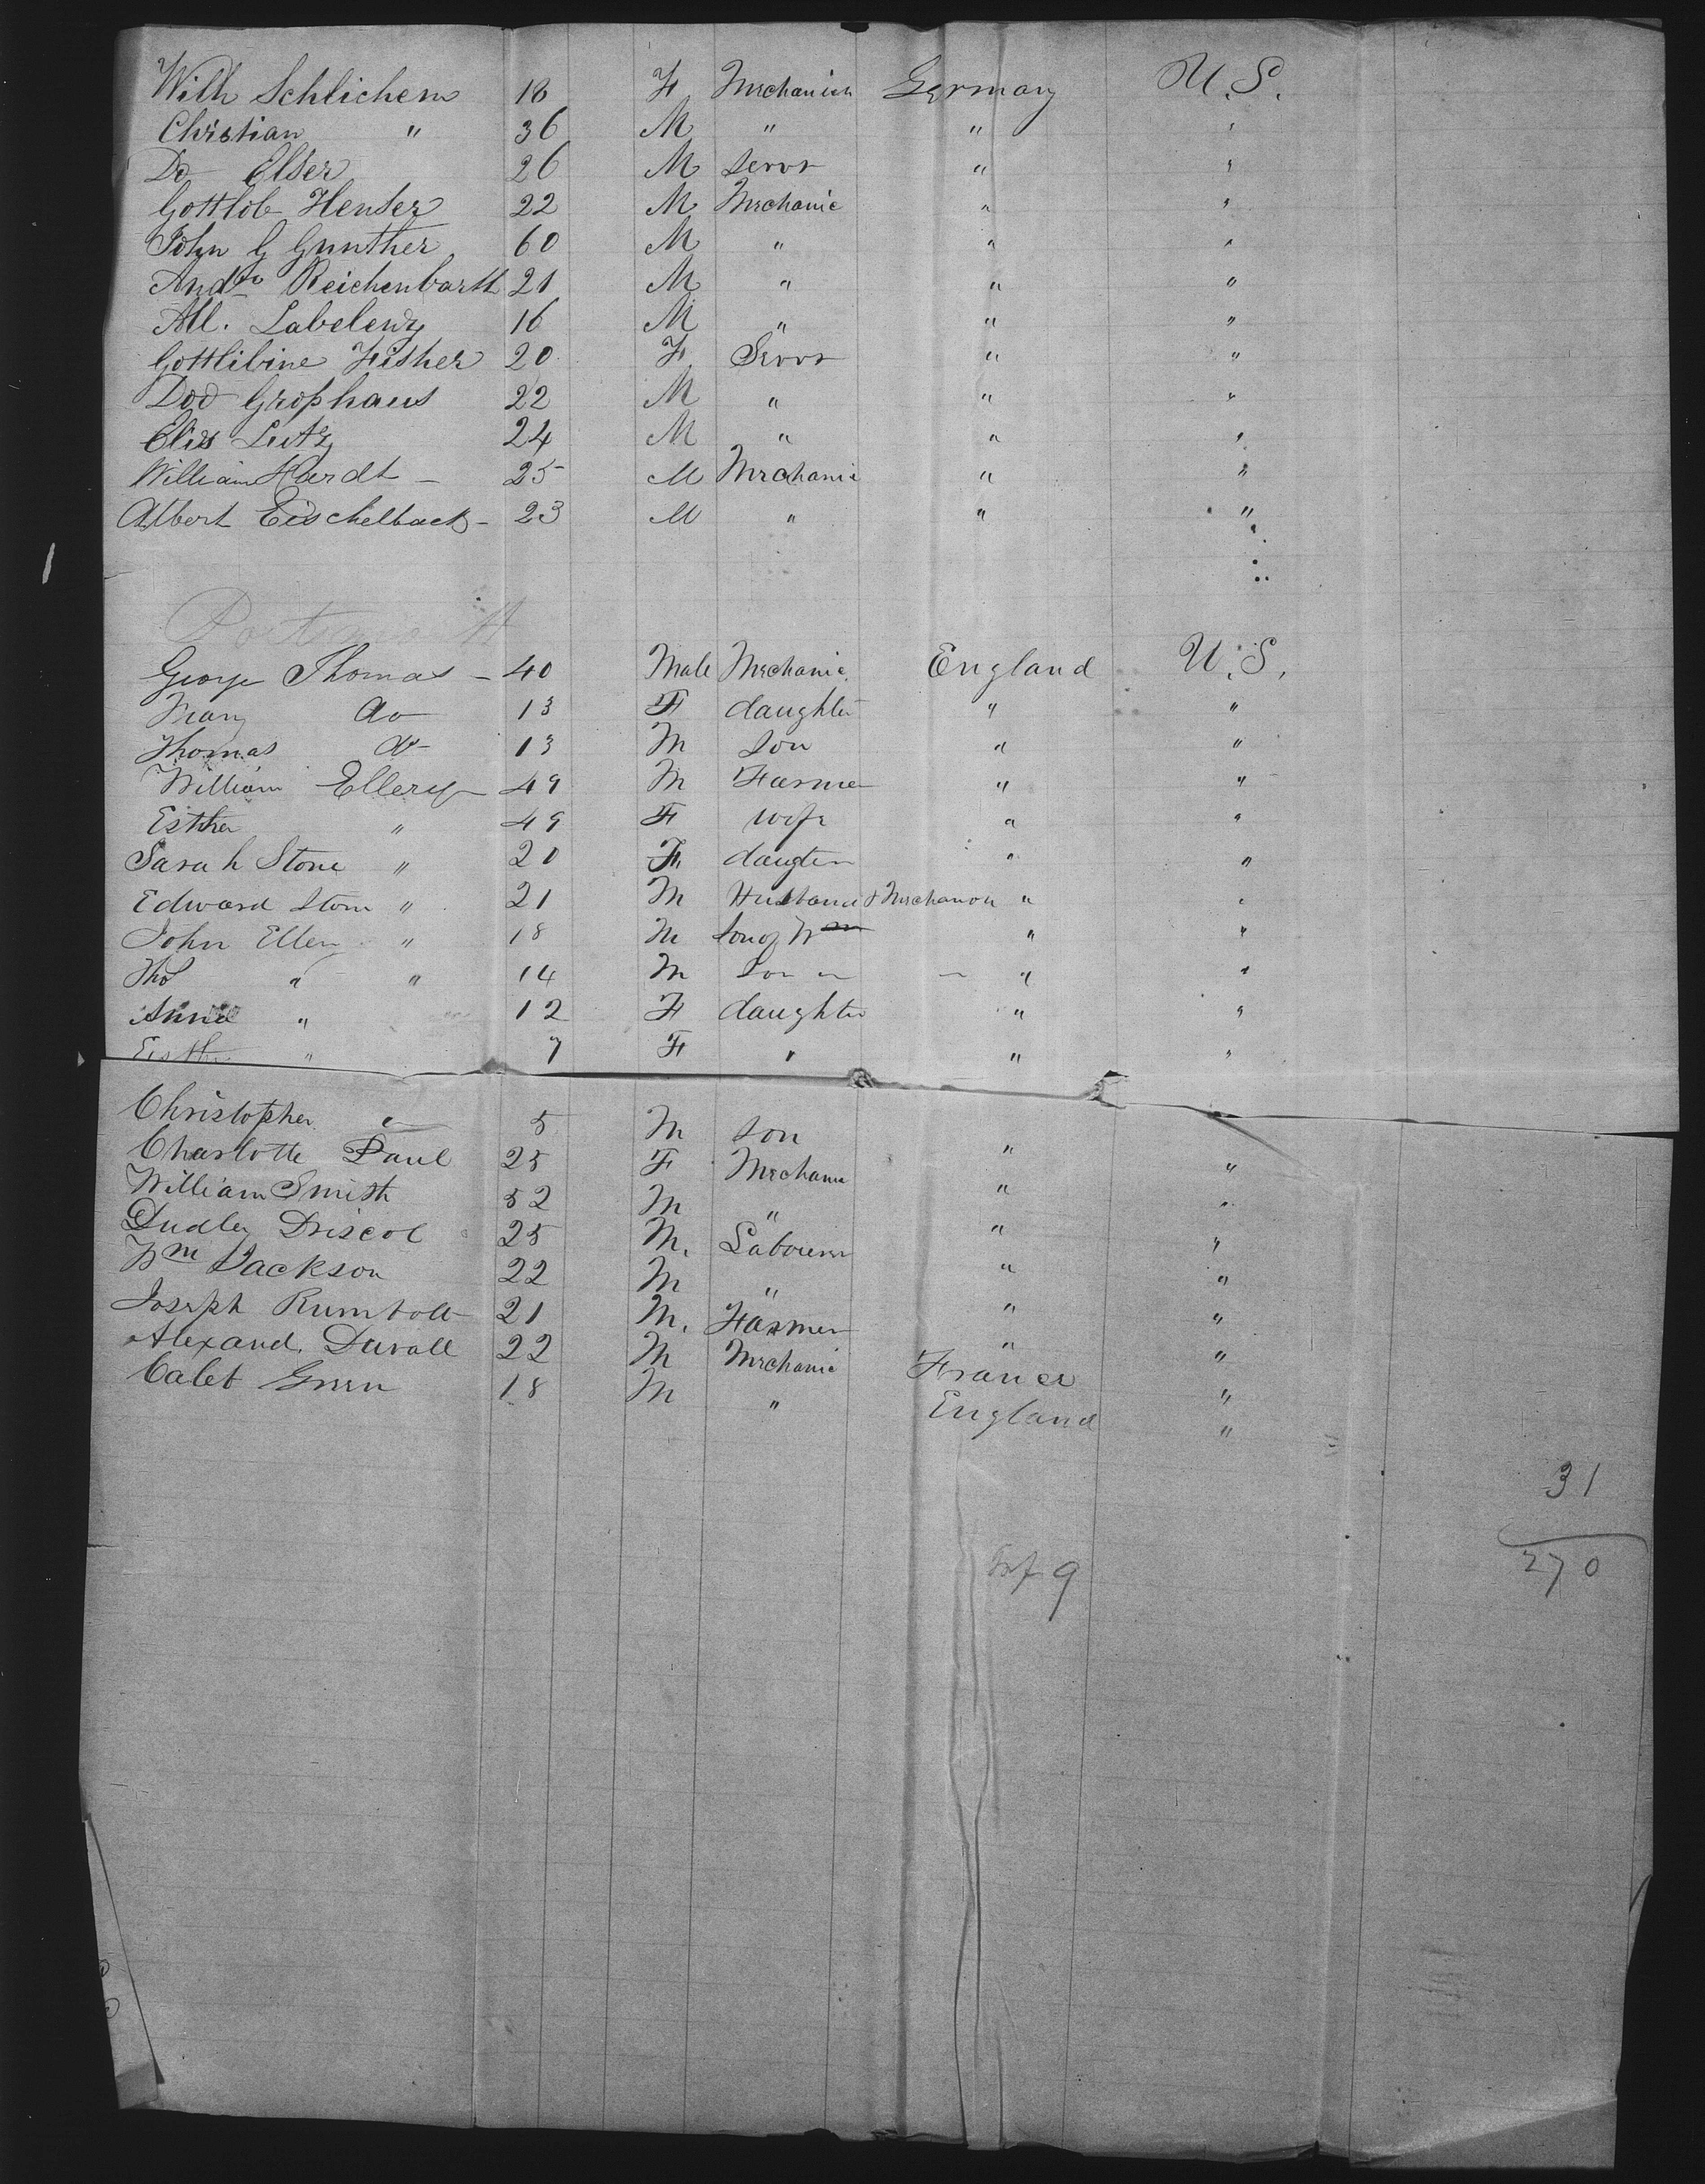 Wilh Schlichem 18 F Mechanick Germany U.S.
Christian " 36 M " " "
Do Elser 26 M Servr " "
Gottlob Henser 22 M Mechanic " "
John G Gunther 60 M " " "
Reichenbarth 21 M " " "
16 M " " "
Gottlibine Fisher 20 F Servr " "
Grophaus 22 M " " "
Lutz 24 M " " "
William Hardt - 25 M Mechanic " "
Albert Eischelback - 23 M " " "
Portsmouth
George Thomas - 40 Male Mechanic England U.S.
Mary do 13 F daughter " "
Thomas do 13 M Son " "
William Ellery 49 M Farmer " "
Esther " 49 F wife " "
Sarah Stone " 20 F daugter " "
Edward Stone " 21 M Husband & Mechanick " "
John Ellery " 18 M Son of Wm " "
Tho " " 14 M Son " " "
Anna " 12 F daughter " "
Esther " 7 F " " "
Christopher " 5 M Son " "
Charlotte Paul 25 F Mechanic " "
William Smith 52 M " " "
Dudley Driscol 25 M. Labourer " "
Wm Jackson 22 M " " "
Joseph Rumbolt 21 M. Farmer " "
Alexand. Duvall 22 M Mechanic France "
Caleb Green 18 M " England "
31
9
270